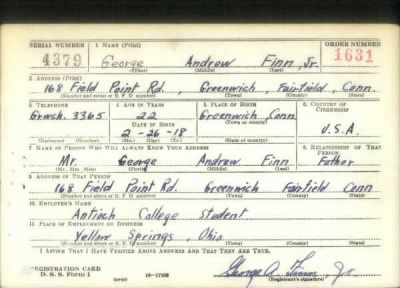 SERIAL NUMBER 1. NAME (Print) ORDER NUMBER
4379 George Andrew Finn, Jr. 1631
(First) (Middle) (Last)
2. ADDRESS (Print)
168 Field Point Rd., Greenwich, Fairfield, Conn.
(Number and street or R. F. D. number) (Town) (County) (State)
3. TELEPHONE 4. AGE IN YEARS 5. PLACE OF BIRTH 6. COUNTRY OF CITIZENSHIP
Grwch. 3365 22 Greenwich, Conn
DATE OF BIRTH (Town) (County)
2-26-18 U.S.A.
(Exchange) (Number) (Mo.) (Day) (Yr.) (State or country)
7. NAME OF PERSON WHO WILL ALWAYS KNOW YOUR ADDRESS 8. RELATIONSHIP OF THAT PERSON
Mr. George Andrew Finn Father
(Mr., Mrs., Miss) (First) (Middle) (Last)
9. ADDRESS OF THAT PERSON
168 Field Point Rd. Greenwich Fairfield Conn
(Number and street or R. F. D. number) (Town) (County) (State)
10. EMPLOYER'S NAME
Antioch College student
11. PLACE OF EMPLOYMENT OR BUSINESS
Yellow Springs, Ohio
(Number and street or R. F. D. number) (Town) (County) (State)
I AFFIRM THAT I HAVE VERIFIED ABOVE ANSWERS AND THAT THEY ARE TRUE.
George A. Finn, Jr.
REGISTRATION CARD
D. S. S. Form 1 (over) 16-17105 (Registrant's signature)